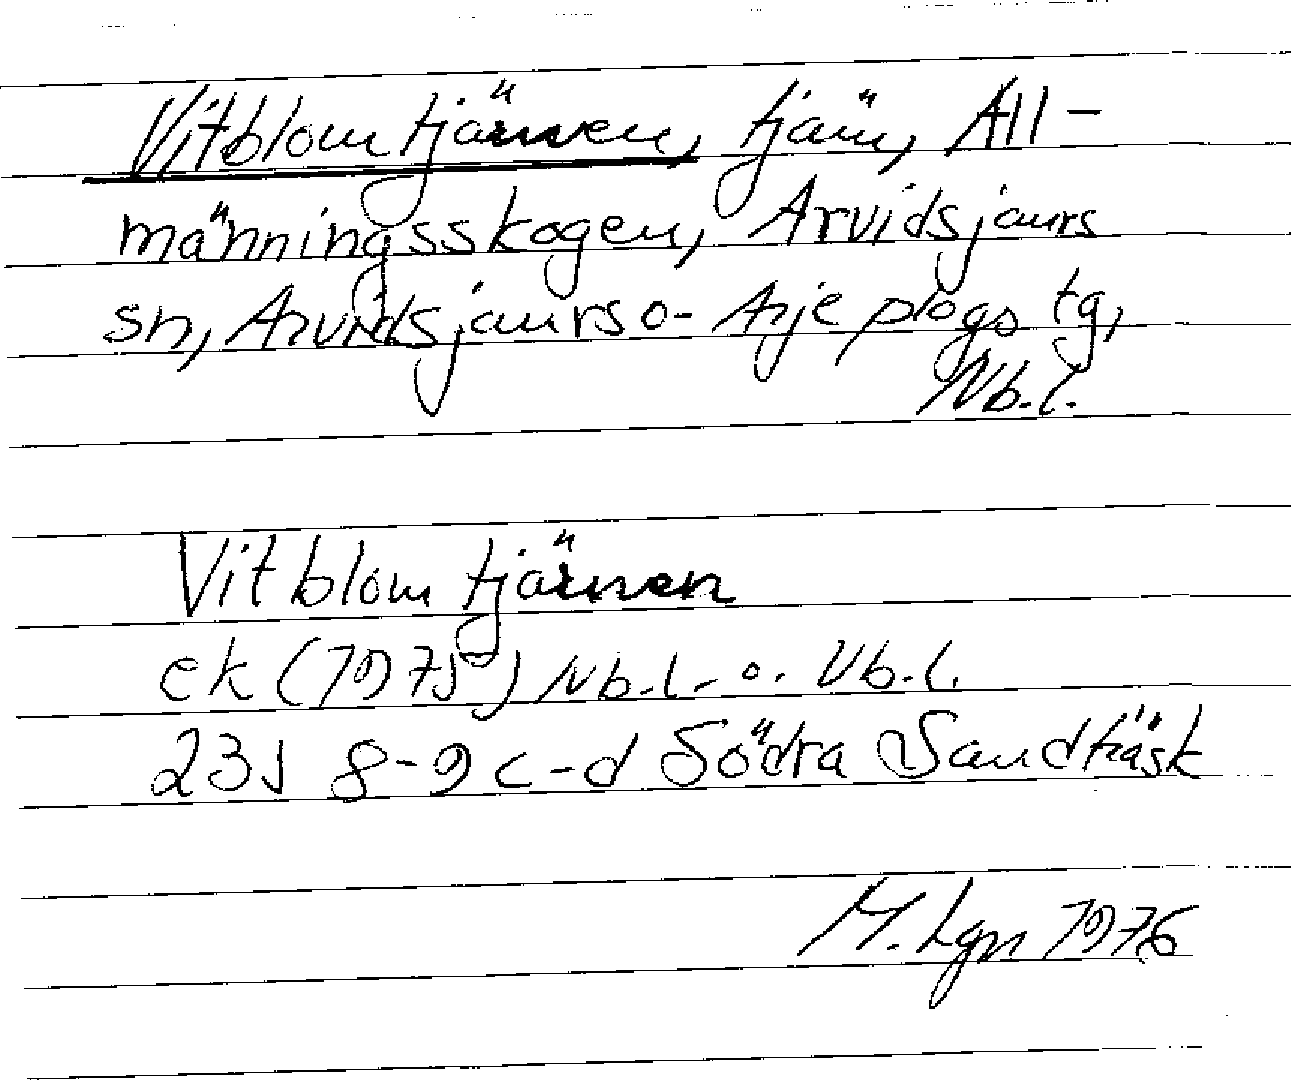 Vitblomtjärnen, tjärn, All-
männingsskogen, Arvidsjaurs
sn, Arvidsjaurs o- Arjeplogs tg,
Nb.l.
Vitblomtjärnen
ek (1975) Nb.l. o. Vb.l.
23J 8-9 c-d Södra Sandträsk
M. Lgn 1976